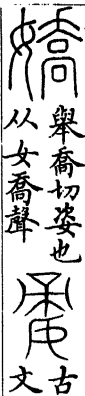 嬌
舉喬切姿也
从女喬聲
古
文